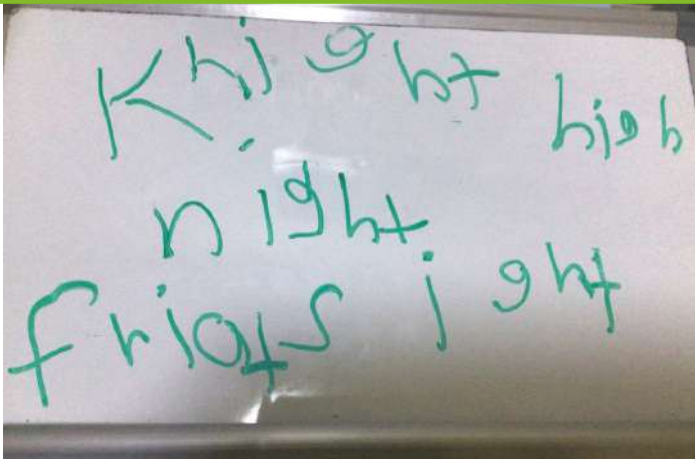 Knight high
night
friqts ight